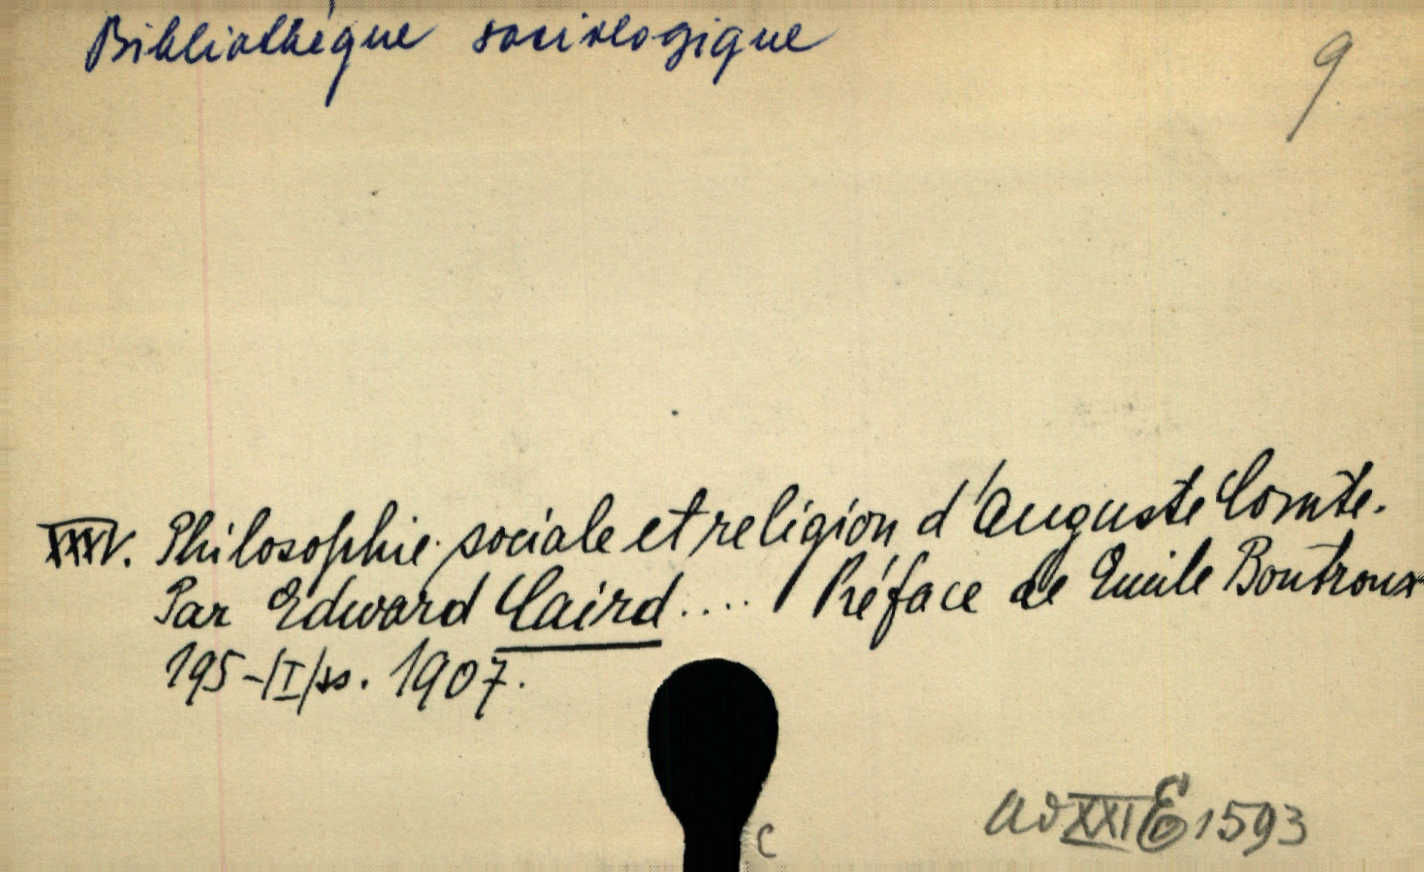 Bibliothèque sociologique
9
XXXV. Philosophie sociale et religion d'Auguste Comte.
Par Edward Caird .... Préface de Emile Boutroux
195-/I/ss. 1907.
ad XXI E 1593
C